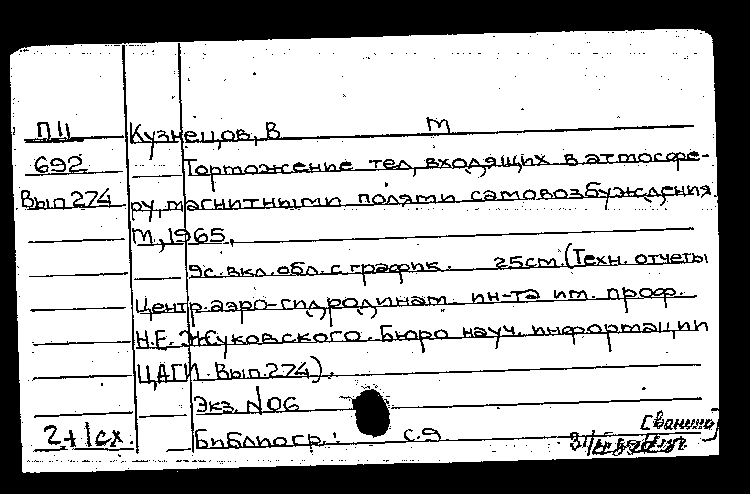 П11 Кузнецов, В М
692 Торможение тел, входящих в атмосфе-
Вып 274 ру, магнитными полями самовозбуждения
М, 1965,
9с. вкл. обл. с график. 25см. (Техн. отчеты
Центр. аэро-гидродинам. ин-та им. проф.
Н.Е. Жуковского. Бюро науч. информации
ЦАГИ. Вып. 274).
Экз. №06
2+1сх. Библиогр.: с.9